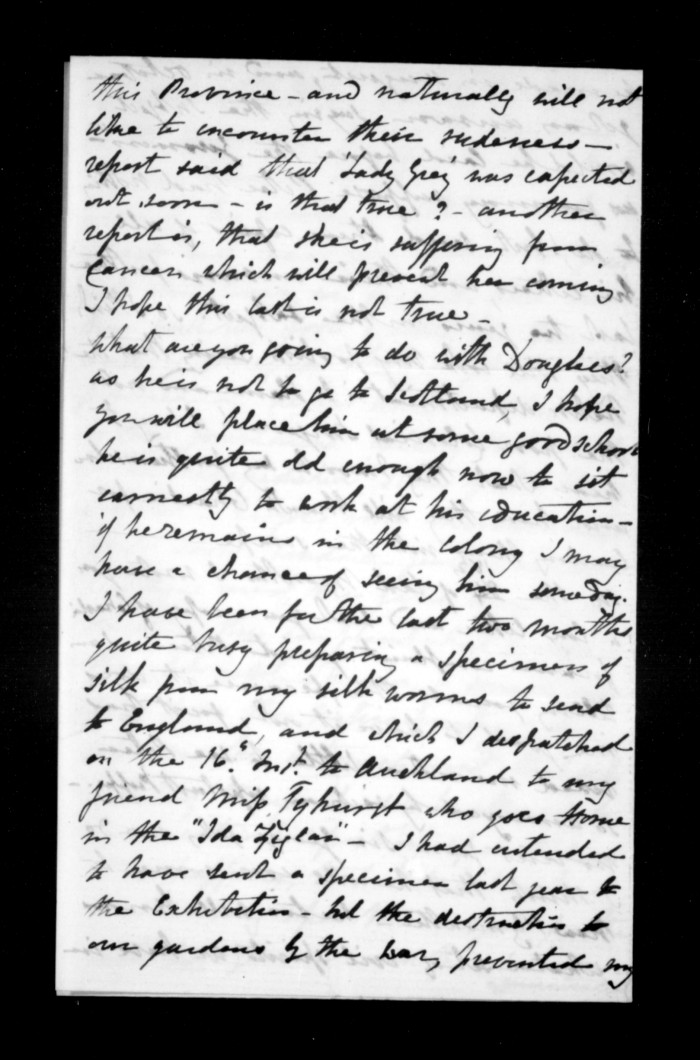 this Province - and naturally will not
like to encounter their rudeness -
report said that Lady Grey was expected
out soon - is that true? - another
report is, that she is suffering from
Cancer which will prevent her coming
I hope this last is not true -
What are you going to do with Douglas?
as he is not to go to Scotland, I hope
you will place him at some good school
he is quite old enough now to sit
earnestly to work at his education -
if he remains in the Colony I may
have a chance of seeing him someday.
I have been for the last two months
quite busy preparing a specimen of
silk from my silk worms to send
to England, and which I despatched
on the 16th. Inst. to Auckland to my
friend Miss Tyhurst who goes Home
in the "Ida Zeigler" - I had intended
to have sent a specimen last year to
the Exhibition - but the destruction to
our gardens by the War, prevented my